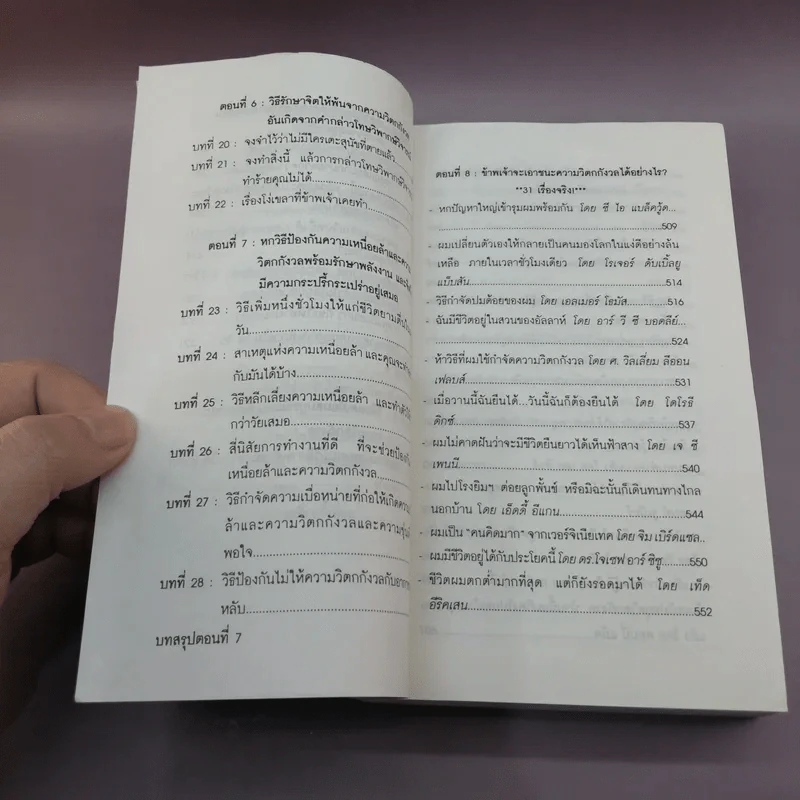 ตอนที่ 6 : วิธีรักษาจิตให้พ้นจากความวิตกกังวล
อันเกิดจากคำกล่าวโทษวิพากษ์วิจารณ์
บทที่ 20 : จงจำไว้ว่าไม่มีใครเตะสุนัขที่ตายแล้ว...
บทที่ 21 : จงทำสิ่งนี้ แล้วการกล่าวโทษวิพากษ์วิจารณ์
ทำร้ายคุณไม่ได้.............
บทที่ 22 : เรื่องโง่เขลาที่ข้าพเจ้าเคยทำ.........
ตอนที่ 7 : หกวิธีป้องกันความเหนื่อยล้าและความ
วิตกกังวลพร้อมรักษาพลังงาน และ
มีความกระปรี้กระเปร่าอยู่เสมอ
บทที่ 23 : วิธีเพิ่มหนึ่งชั่วโมงให้แก่ชีวิตยามตื่น
วัน..............................
บทที่ 24 : สาเหตุแห่งความเหนื่อยล้า และคุณจะทำ
กับมันได้บ้าง....................
บทที่ 25 : วิธีหลีกเลี่ยงความเหนื่อยล้า และทำตัว
กว่าวัยเสมอ....................
บทที่ 26 : สี่นิสัยการทำงานที่ดี ที่จะช่วยป้องกัน
เหนื่อยล้าและความวิตกกังวล........
บทที่ 27 : วิธีกำจัดความเบื่อหน่ายที่ก่อให้เกิดความ
ล้าและความวิตกกังวลและความขุ่น
พอใจ............................
บทที่ 28 : วิธีป้องกันไม่ให้ความวิตกกังวลกับอาการ
หลับ............................
บทสรุปตอนที่ 7
ตอนที่ 8 : ข้าพเจ้าจะเอาชนะความวิตกกังวลได้อย่างไร?
**31 เรื่องจริง!***
- หกปัญหาใหญ่เข้ารุมผมพร้อมกัน โดย ซี ไอ แบล็ควู้ด...
..............................509
- ผมเปลี่ยนตัวเองให้กลายเป็นคนมองโลกในแง่ดีอย่างล้น
เหลือ ภายในเวลาชั่วโมงเดียว โดย โรเจอร์ ดับเบิ้ลยู
แบ็บสัน..............................514
- วิธีกำจัดปมด้อยของผม โดย เอลเมอร์ โธมัส...........516
- ฉันมีชีวิตอยู่ในสวนของอัลลาห์ โดย อาร์ วี ซี บอดลีย์...
..............................524
- ห้าวิธีที่ผมใช้กำจัดความวิตกกังวล โดย ศ. วิลเลี่ยม ลีออน
เฟลบส์..............................531
- เมื่อวานนี้ฉันยืนได้...วันนี้ฉันก็ต้องยืนได้ โดย โดโรธี
ดิกซ์..............................537
- ผมไม่คาดฝันว่าจะมีชีวิตยืนยาวได้เห็นฟ้าสาง โดย เจ ซี
เพนนี..............................540
- ผมไปโรงยิมฯ ต่อยลูกพั้นช์ หรือมิฉะนั้นก็เดินทนทางไกล
นอกบ้าน โดย เอ็ดดี้ อีแกน..............................544
- ผมเป็น "คนคิดมาก" จากเวอร์จิเนียเทค โดย จิม เบิร์ดแซล..
- ผมมีชีวิตอยู่ได้กับประโยคนี้ โดย ดร.โจเซฟ อาร์ ซิซู....550
- ชีวิตผมตกต่ำมากที่สุด แต่ก็ยังรอดมาได้ โดย เท็ด
อีริคเสน..............................552